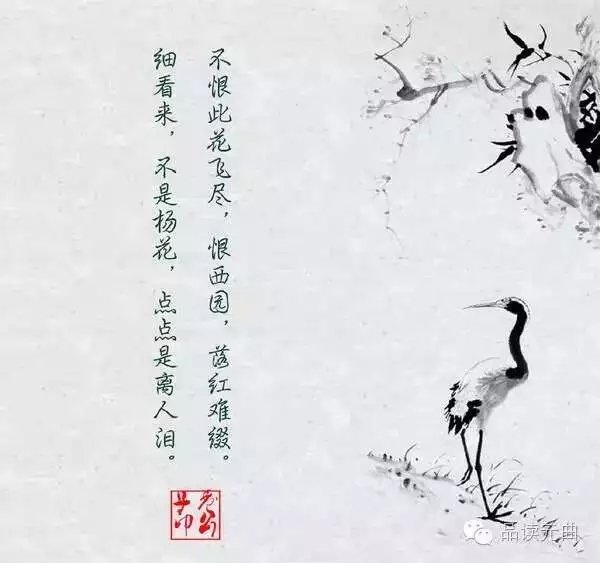 不恨此花飞尽，恨西园，落红难缀。
细看来，不是杨花，点点是离人泪。
品读元曲